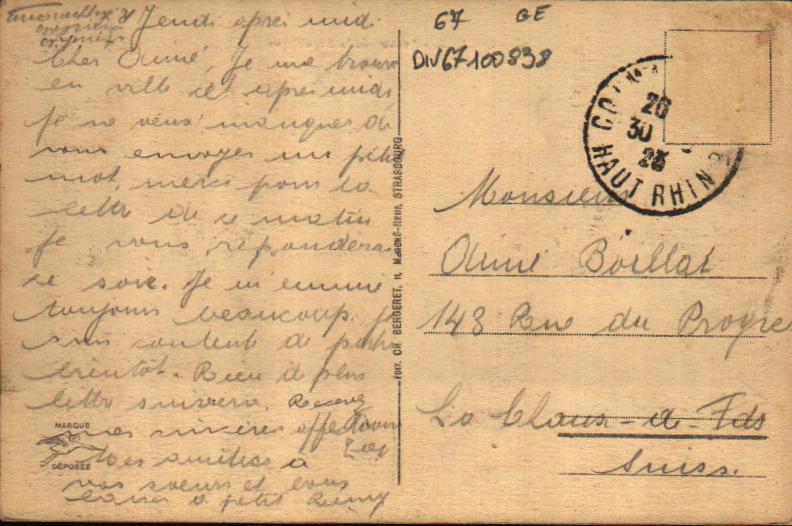 Jeudi après midi
Cher Aimé, Je me trouve
en ville cet après midi
Je ne veux manquer de
vous envoyer un petit
mot, merci pour la
lettre de ce matin
Je vous répondera
ce soir. Je m'ennuie
toujours beaucoup. Je
suis content de
bientôt. Rien d plus
lettre suivera. Recevez
mes sincères affections
Mes amitiés à
vos soeurs et bons
baisers à petit Rémy
MARQUE
DÉPOSÉE
ÉDIT. CH. BERGERET, MARCHÉ-NEUF, STRASBOURG
67 GE
DIV67100838
26
30
HAUT RHIN
Monsieur
Aimé Boillat
148 Rue du Progre
La Chaux-d-Fds
Suiss.